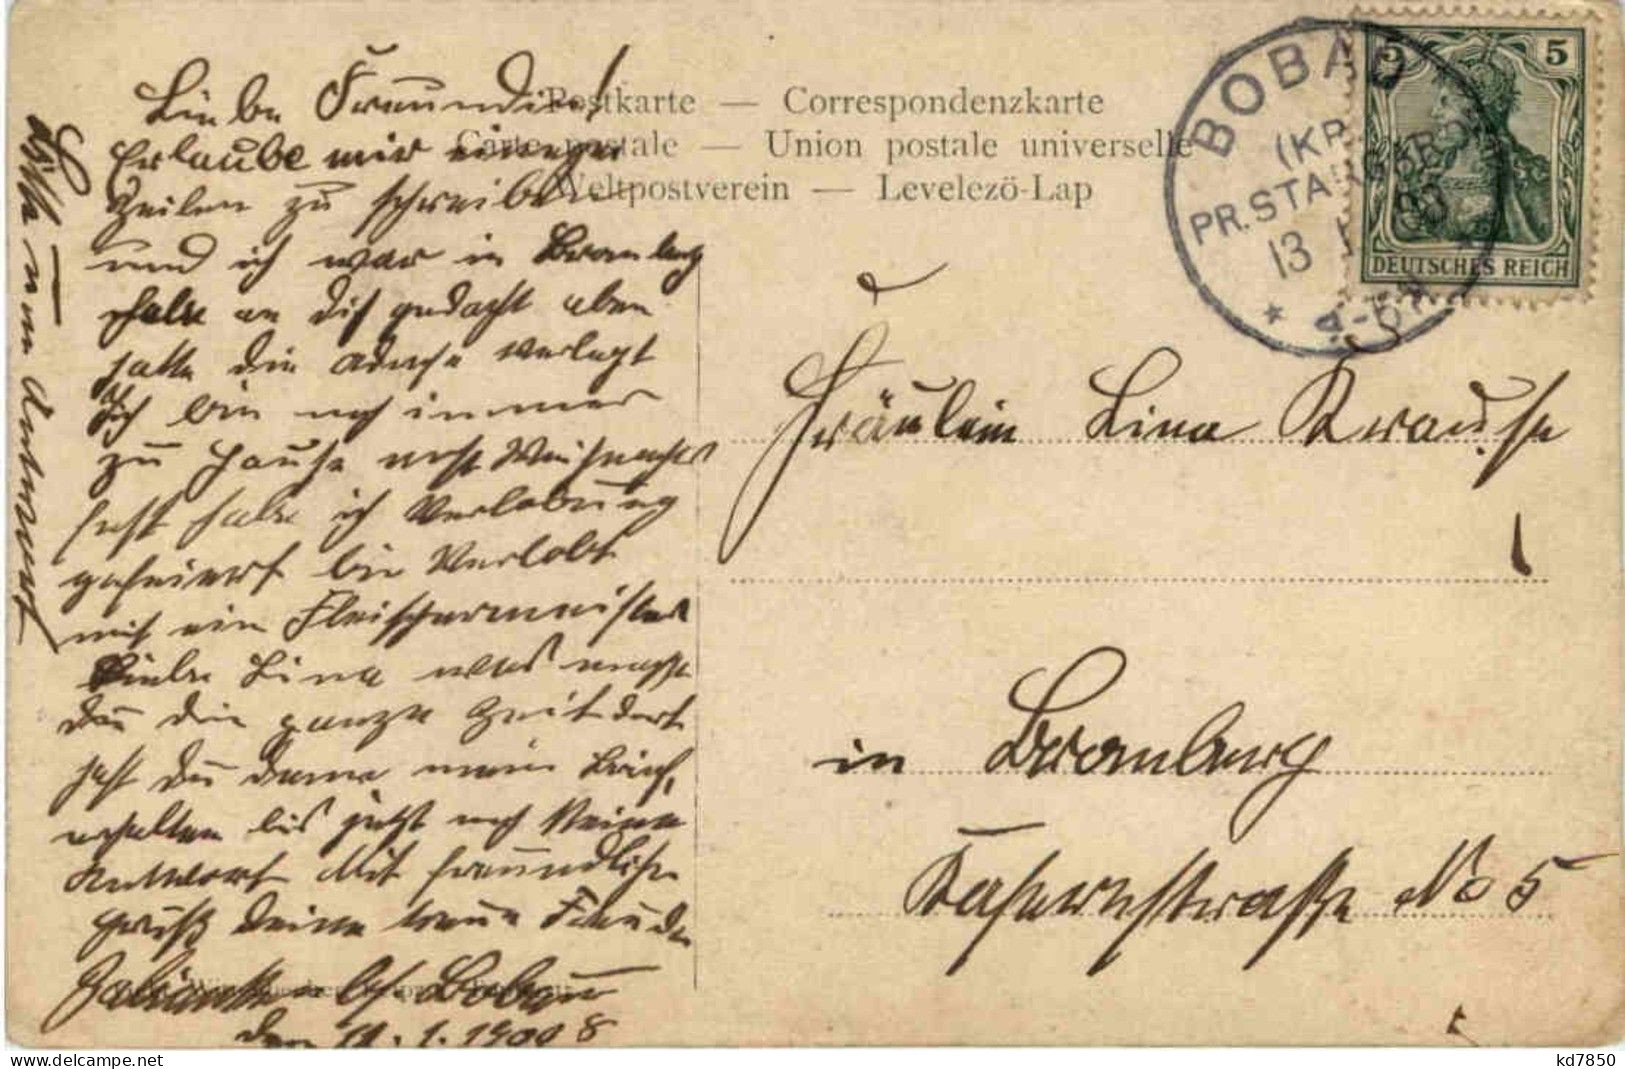 Postkarte — Correspondenzkarte
Carte postale — Union postale universelle
Weltpostverein — Levelezö-Lap
BOBAU
(KR.
PR. STARGARD)
13
5
5
DEUTSCHES REICH
Liebe Freundin!
Erlaube mir einige
Zeilen zu schreiben
und ich war in
habe an dich gedacht aber
hatte die adresse verlegt
Ich bin noch immer
zu Hause Weihnachts
fest habe ich Verlobung
gefeiert bin Verlobt
mit ein Fleischermeister
Liebe Lina was machst
du die ganze Zeit dort
hast du mein Brief
erhalten bis jetzt noch Keine
Antwort Mit freundlichen
gruß Deine treue Freundin
Bobau
den 1.1908
Bitte um Antwort
Fräulein Lina Krause
in
Kasernstrasse No 5
kd7850